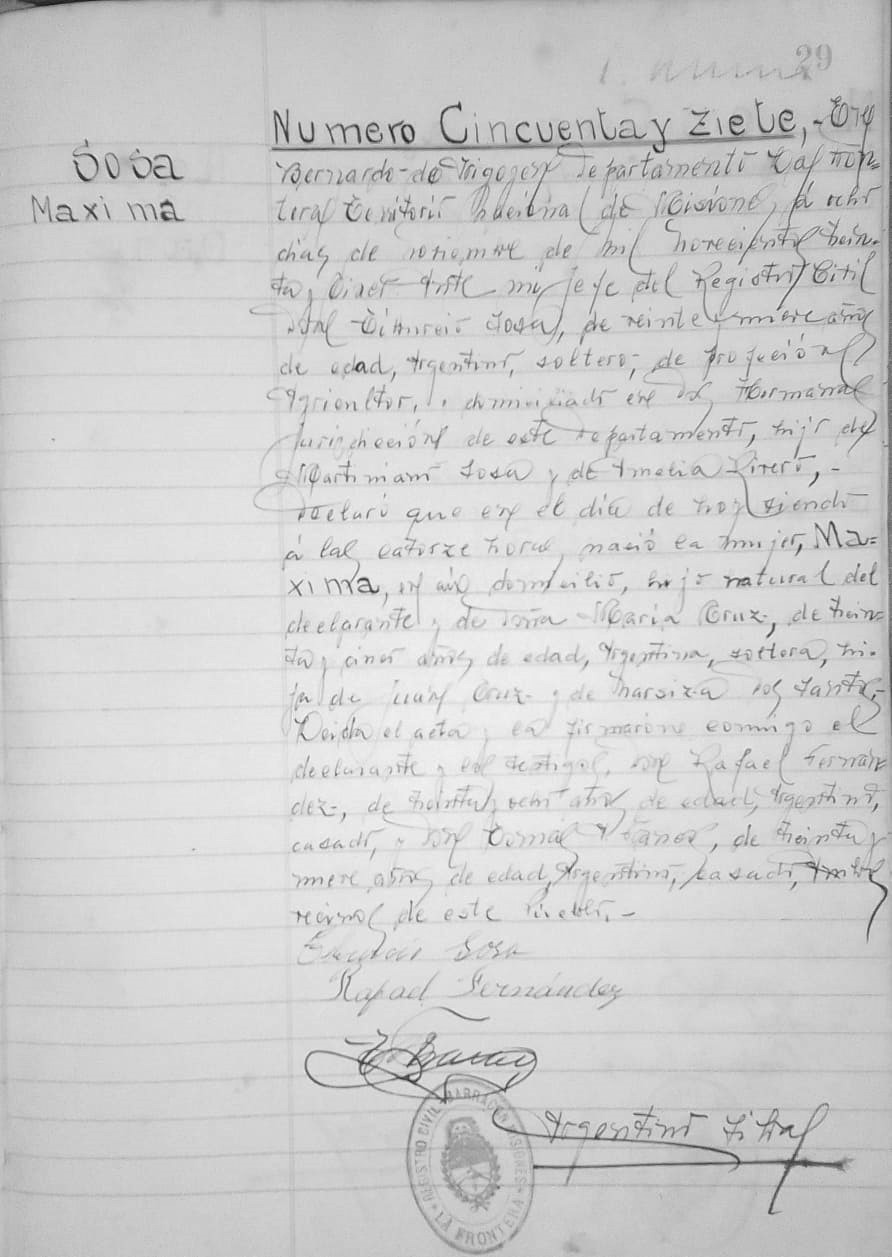 29
Numero Cincuenta y Ziete,- En
Sosa
Maxima
Bernardo de Irigoyen Departamento Las Fron-
teras Territorio Nacional de Misiones, á ocho
dias de de mil novecientos trein-
ta y cinco Ante mi Jefe del Registro Civil
Don Sosa, de veinte y nueve años
de edad, Argentino, soltero, de profeción
Agricultor, domiciliado en Dos Hermanas
Jurisdicción de este Departamento, hijo de
Martiniano Sosa y de Amelia Rivero,-
Declaró que en el día de hoy siendo
á las catorze horas nació la mujer, Ma=
xima, en su domicilio, hijo natural del
declarante y de Doña Maria Cruz-, de trein-
ta y cinco años de edad, Argentina, soltera, hi-
ja de Juan Cruz- y de Narsiza dos Santos,-
Leida el acta la firmarón conmigo el
declarante y los testigos, Don Rafael Fernán
dez-, de treinta y ocho años de edad, Argentino,
casado, y Don Tomás, de treinta y
nueve años de edad, Argentino, casado, Ambos
vecinos de este Pueblo,-
Sosa
Rafael Fernández
Argentino
REGISTRO CIVIL BARRACON MISIONES
LA FRONTERA